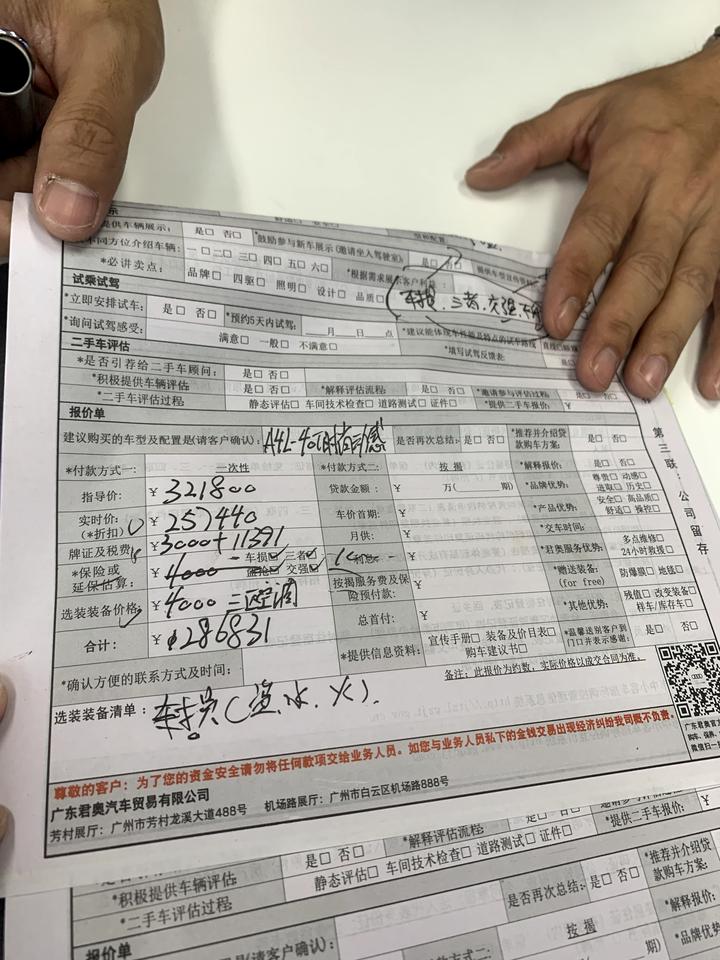 提供车辆展示: 是□ 否□ *鼓励参与新车展示(邀请坐入驾驶室): 是□
不同方位介绍车辆: 一□二□三□四□五□六□ 提供车型宣传资料
*必讲卖点: 品牌□ 四驱□ 照明□ 设计□ 品质□ *根据需求展示客户利益:
试乘试驾 车损、三者、交强、不
*立即安排试车: 是□ 否□ *预约5天内试驾: ___月___日 *建议能体现车性能及特点的试车路线
*询问试驾感受: 满意□ 一般□ 不满意□ *填写试驾反馈表:
二手车评估
*是否引荐给二手车顾问: 是□ 否□
*积极提供车辆评估: 是□ 否□ *解释评估流程: 是□ 否□ *邀请参与评估过程: 是□ 否□
*二手车评估过程: 静态评估□ 车间技术检查□ 道路测试□ 证件□ *提供二手车报价: ¥
报价单
建议购买的车型及配置是(请客户确认): A4L-40T时尚动感 是否再次总结: 是□ 否□ *推荐并介绍贷款购车方案: 是□ 否□
*付款方式一: 一次性 *付款方式二: 按揭 *解释报价: 是□ 否□
指导价: ¥321800 贷款金额: ¥ 万( 期) *品牌优势: 尊贵□ 动感□ 进取□ 历史□
实时价: (*折扣) ¥257440 车价首期: ¥ *产品优势: 安全□ 高品质□ 舒适□ 操控□
牌证及税费 ¥3000+11391 月供: ¥ *交车时间:
*保险或延保估算: ¥4000 车损 三者 盗抢 交强 *君奥服务优势: 多点维修□ 24小时救援□
按揭服务费及保险预付款: ¥ *赠送装备: (for free) 防爆膜□ 地毯□
选装装备价格: ¥4000 三区空调 总首付: ¥ *其他优势: 残值□ 改变装备□ 样车/库存车□
合计: ¥286831 *提供信息资料: 宣传手册□ 装备及价目表□ 购车建议书□ *温馨送别客户到门口并表示感谢: 是□ 否□
*确认方便的联系方式及时间: 备注: 此报价为约数, 实际价格以成交合同为准。
选装装备清单: 车损(盗、水、火).
第三联:公司留存
尊敬的客户: 为了您的资金安全请勿将任何款项交给业务人员。如您与业务人员私下的金钱交易出现经济纠纷我司概不负责。
广东君奥汽车贸易有限公司
芳村展厅: 广州市芳村龙溪大道488号 机场路展厅: 广州市白云区机场路888号
是□ 否□ *解释评估流程: 是□ 否□ *提供二手车报价:
*积极提供车辆评估: 静态评估□ 车间技术检查□ 道路测试□ 证件□
*二手车评估过程: 是否再次总结: 是□ 否□ *推荐并介绍贷款购车方案:
报价单 *解释报价:
(请客户确认): 按揭 *品牌优势
*付款方式二: 期)